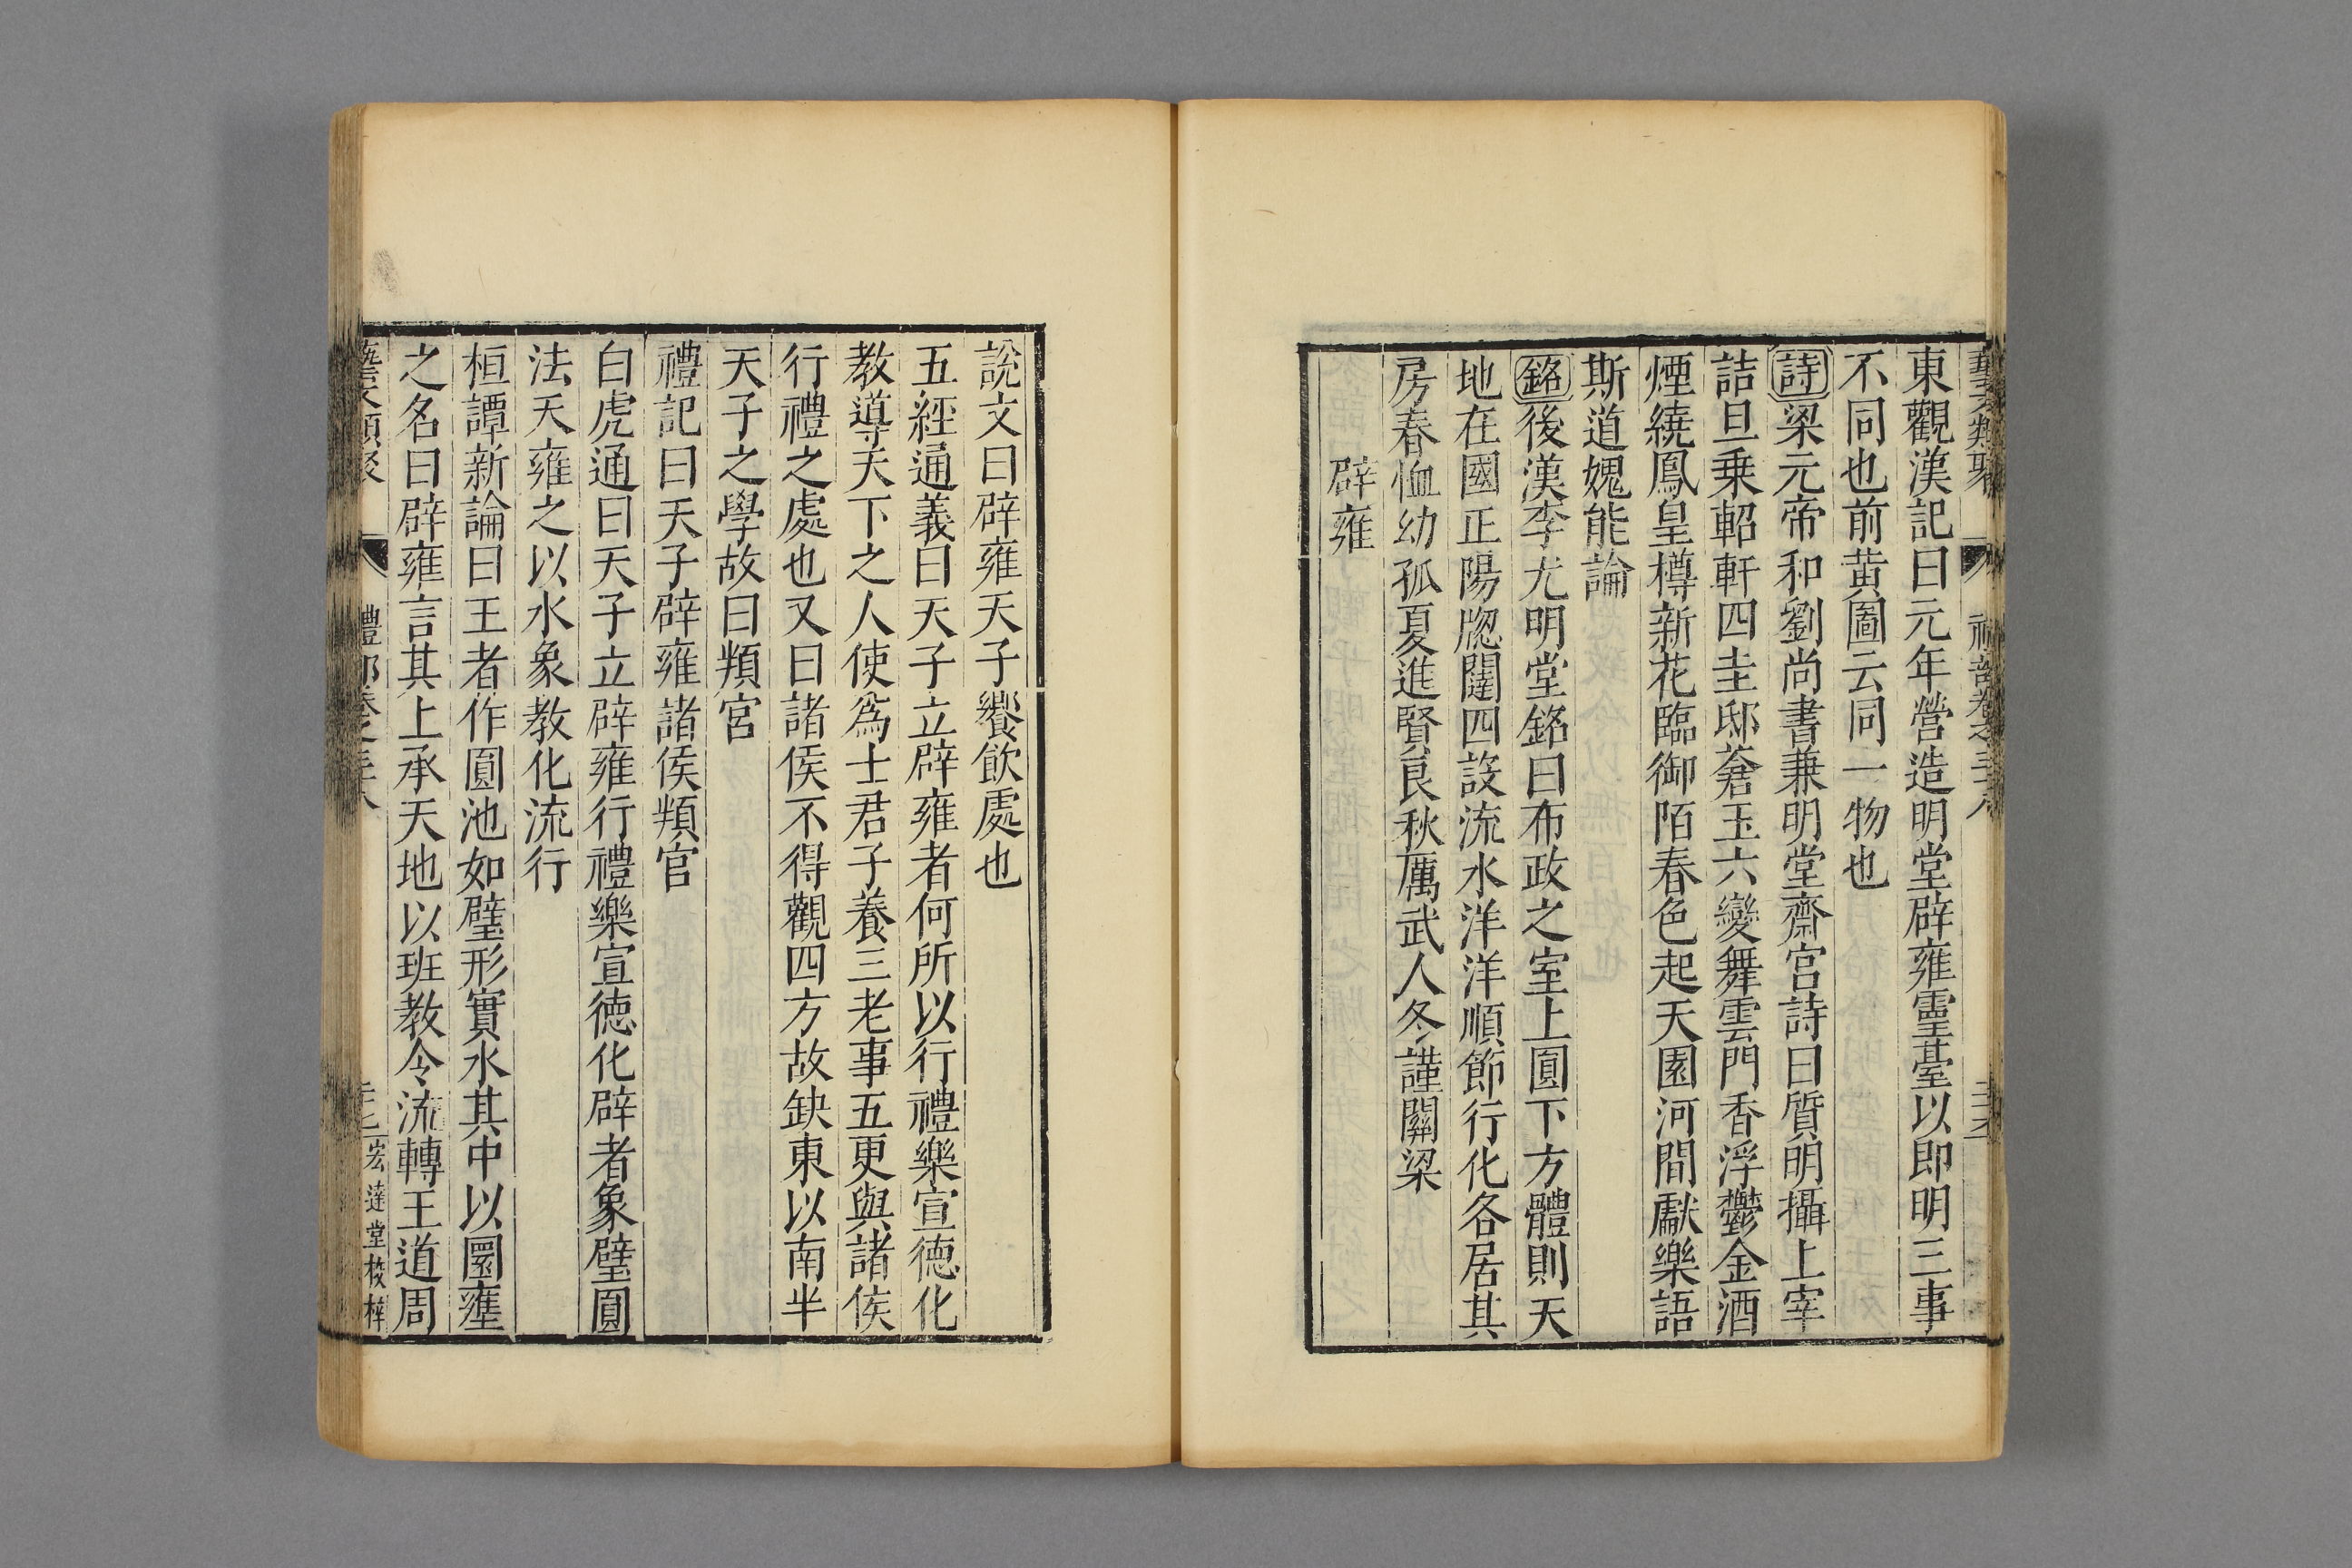 東觀漢記曰元年營造明堂辟雍靈臺以即明三事
不同也前黃圖云同一物也
詩梁元帝和劉尚書兼明堂齋宮詩曰質明攝上宰
詰旦乗軺軒四圭邸蒼玉六變舞雲門香浮鬱金酒
煙繞鳳皇樽新花臨御陌春色起天園河間獻樂語
斯道媿能論
銘後漢李尤明堂銘曰布政之室上圓下方體則天
地在國正陽牎闥四設流水洋洋順節行化各居其
房春恤幼孤夏進賢良秋厲武人冬謹關梁
辟雍
說文曰辟雍天子饗飲處也
五經通義曰天子立辟雍者何所以行禮樂宣德化
教導天下之人使爲士君子養三老事五更與諸侯
行禮之處也又曰諸侯不得觀四方故缺東以南半
天子之學故曰頖宮
禮記曰天子辟雍諸侯頖官
白虎通曰天子立辟雍行禮樂宣德化辟者象璧圓
法天雍之以水象教化流行
桓譚新論曰王者作圓池如璧形實水其中以圜壅
之名曰辟雍言其上承天地以班教令流轉王道周
宏達堂校梓